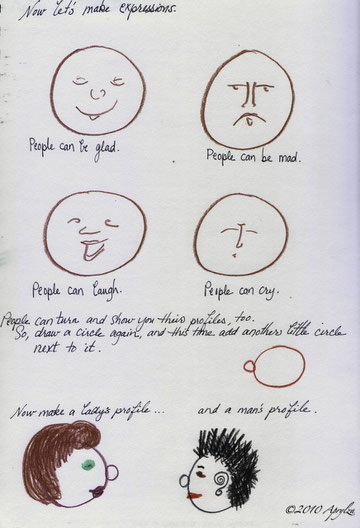 Now let's make expressions.
People can be glad.
People can be mad.
People can laugh.
People can cry.
People can turn and show you their profiles, too.
So, draw a circle again, and this time add another little circle
next to it.
Now make a lady's profile ...
and a man's profile.
©2010